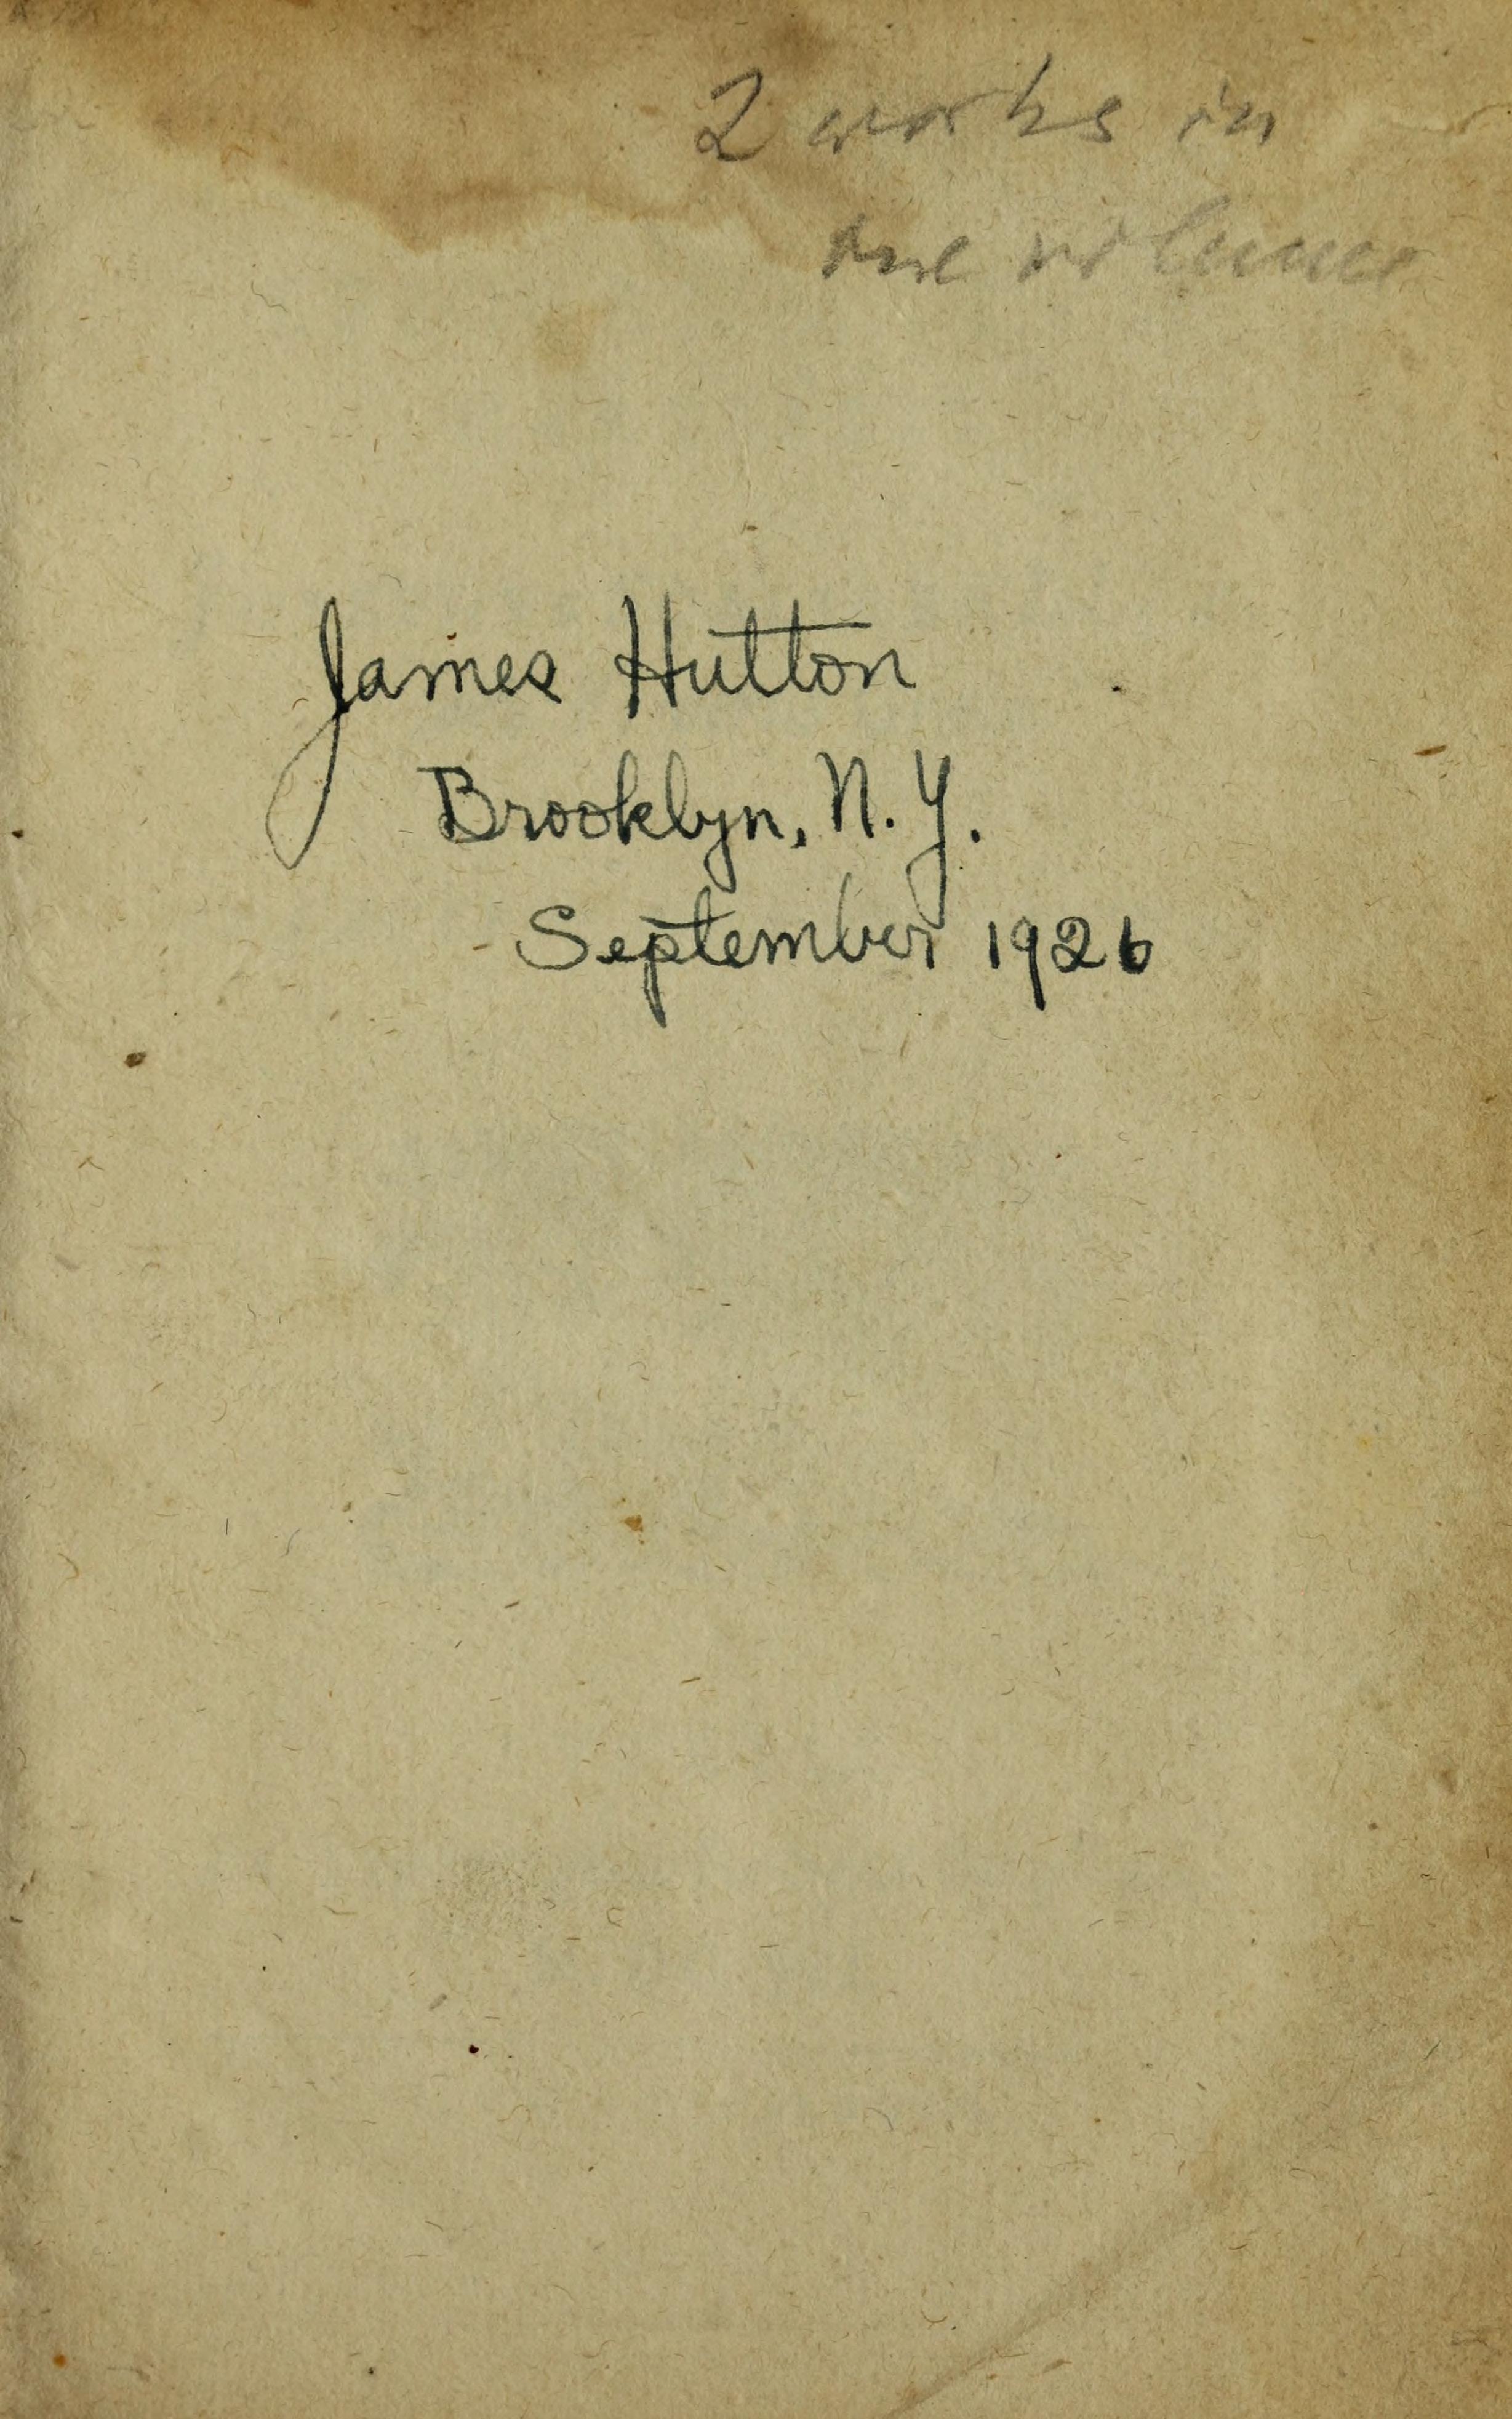 2 works in
one volume
James Hutton
Brooklyn, N. Y.
September 1926